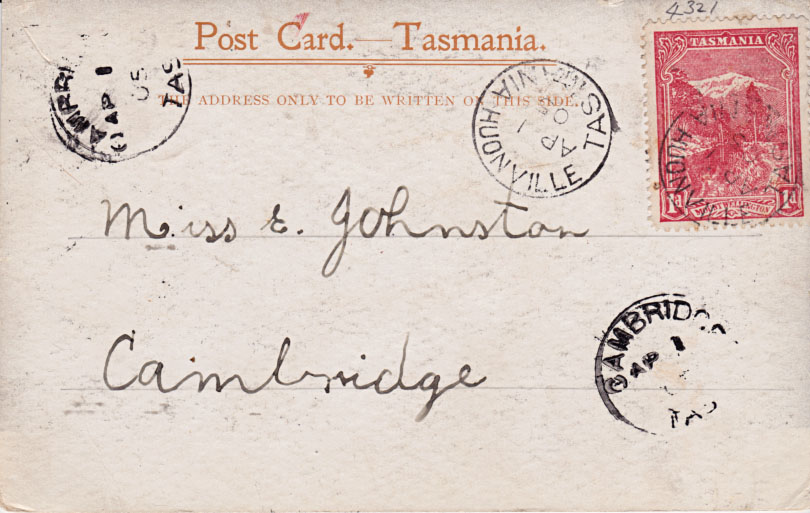 4321
Post Card.—Tasmania.
THE ADDRESS ONLY TO BE WRITTEN ON THIS SIDE.
TASMANIA
MOUNT WELLINGTON
1d 1d
CAMBRI
AP 1
05
TAS
HUONVILLE TASMANIA
AP 1
05
HUONVILLE TAS
Miss E. Johnston
Cambridge
CAMBRIDG
AP 1
TAS